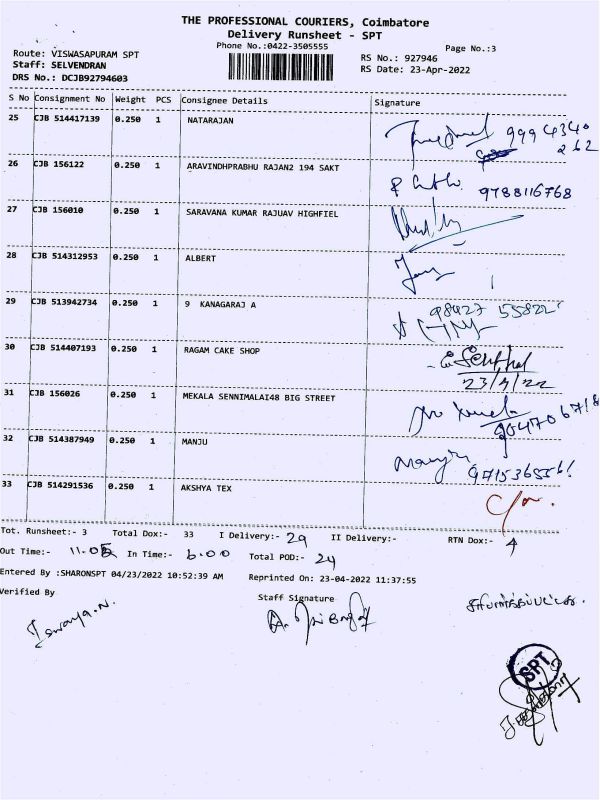 THE PROFESSIONAL COURIERS, Coimbatore
Delivery Runsheet - SPT
Phone No.:0422-3505555
Page No.:3
Route: VISWASAPURAM SPT
RS No.: 927946
Staff: SELVENDRAN
RS Date: 23-Apr-2022
DRS No.: DCJB92794603
S No Consignment No Weight PCS Consignee Details Signature
25 CJB 514417139 0.250 1 NATARAJAN
9994340
262
26 CJB 156122 0.250 1 ARAVINDHPRABHU RAJAN2 194 SAKT
9788116768
27 CJB 156010 0.250 1 SARAVANA KUMAR RAJUAV HIGHFIEL
28 CJB 514312953 0.250 1 ALBERT
29 CJB 513942734 0.250 1 9 KANAGARAJ A
98427 55822
30 CJB 514407193 0.250 1 RAGAM CAKE SHOP
23/4/22
31 CJB 156026 0.250 1 MEKALA SENNIMALAI48 BIG STREET
32 CJB 514387949 0.250 1 MANJU
33 CJB 514291536 0.250 1 AKSHYA TEX
Tot. Runsheet:- 3 Total Dox:- 33 I Delivery:- 29 II Delivery:- RTN Dox:- 4
Out Time:- 11.05 In Time:- 6.00 Total POD:- 24
Entered By :SHARONSPT 04/23/2022 10:52:39 AM Reprinted On: 23-04-2022 11:37:55
Verified By Staff Signature
SPT